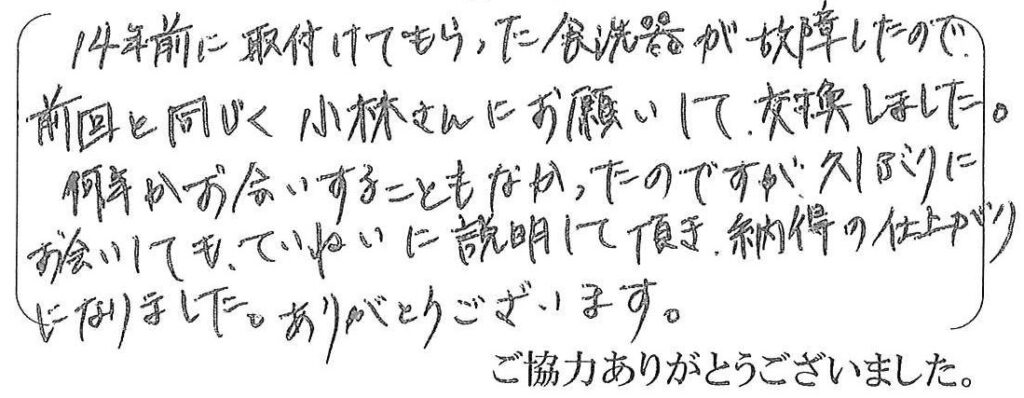 14年前に取付けてもらった食洗器が故障したので、
前回と同じく小林さんにお願いして、交換しました。
何年かお会いすることもなかったのですが、久しぶりに
お会いしても、ていねいに説明して頂き、納得の仕上がり
になりました。ありがとうございます。
ご協力ありがとうございました。